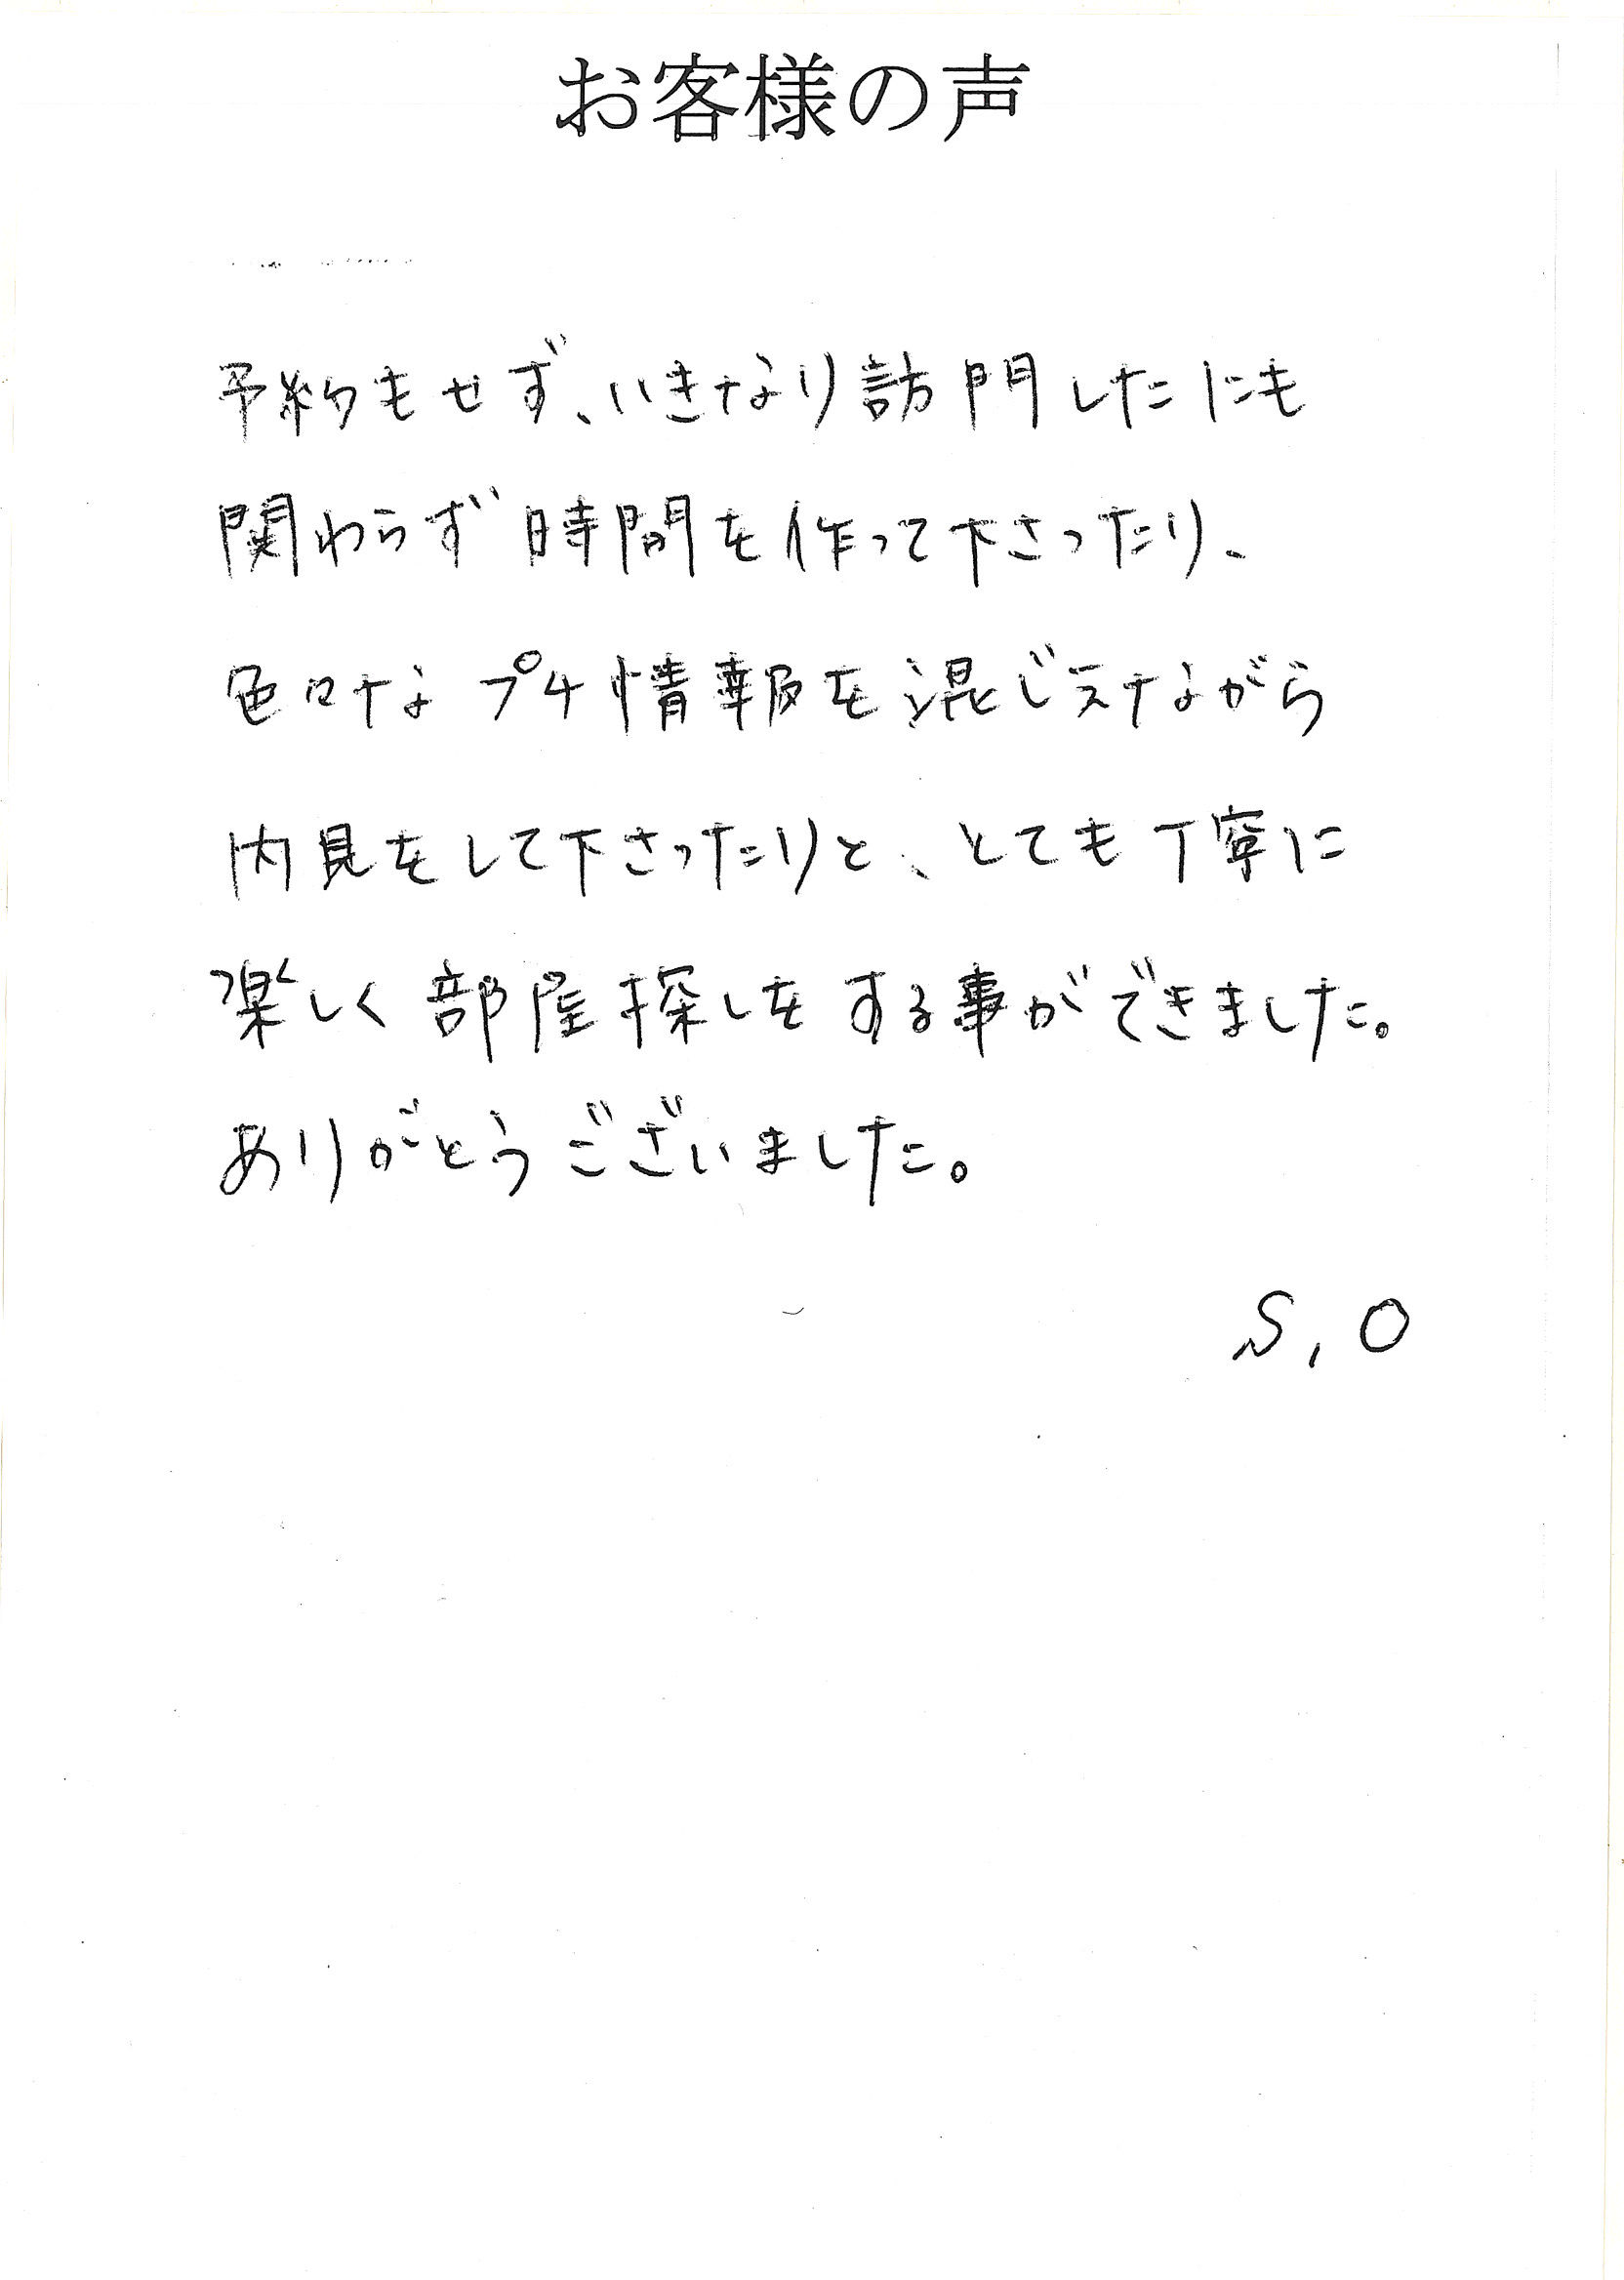 お客様の声
予約もせず、いきなり訪門したにも
関わらず時間を作って下さったり、
色々なプチ情報を混じえながら
内見をして下さったりと、とても丁寧に
楽しく部屋探しをする事ができました。
ありがとうございました。
S,O